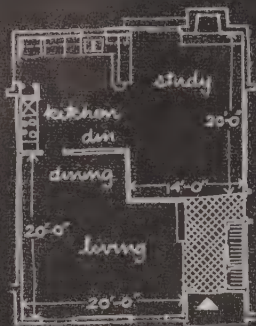 study
kitchen
din
20'-0"
dining
14'-0"
20'-0"
living
20'-0"